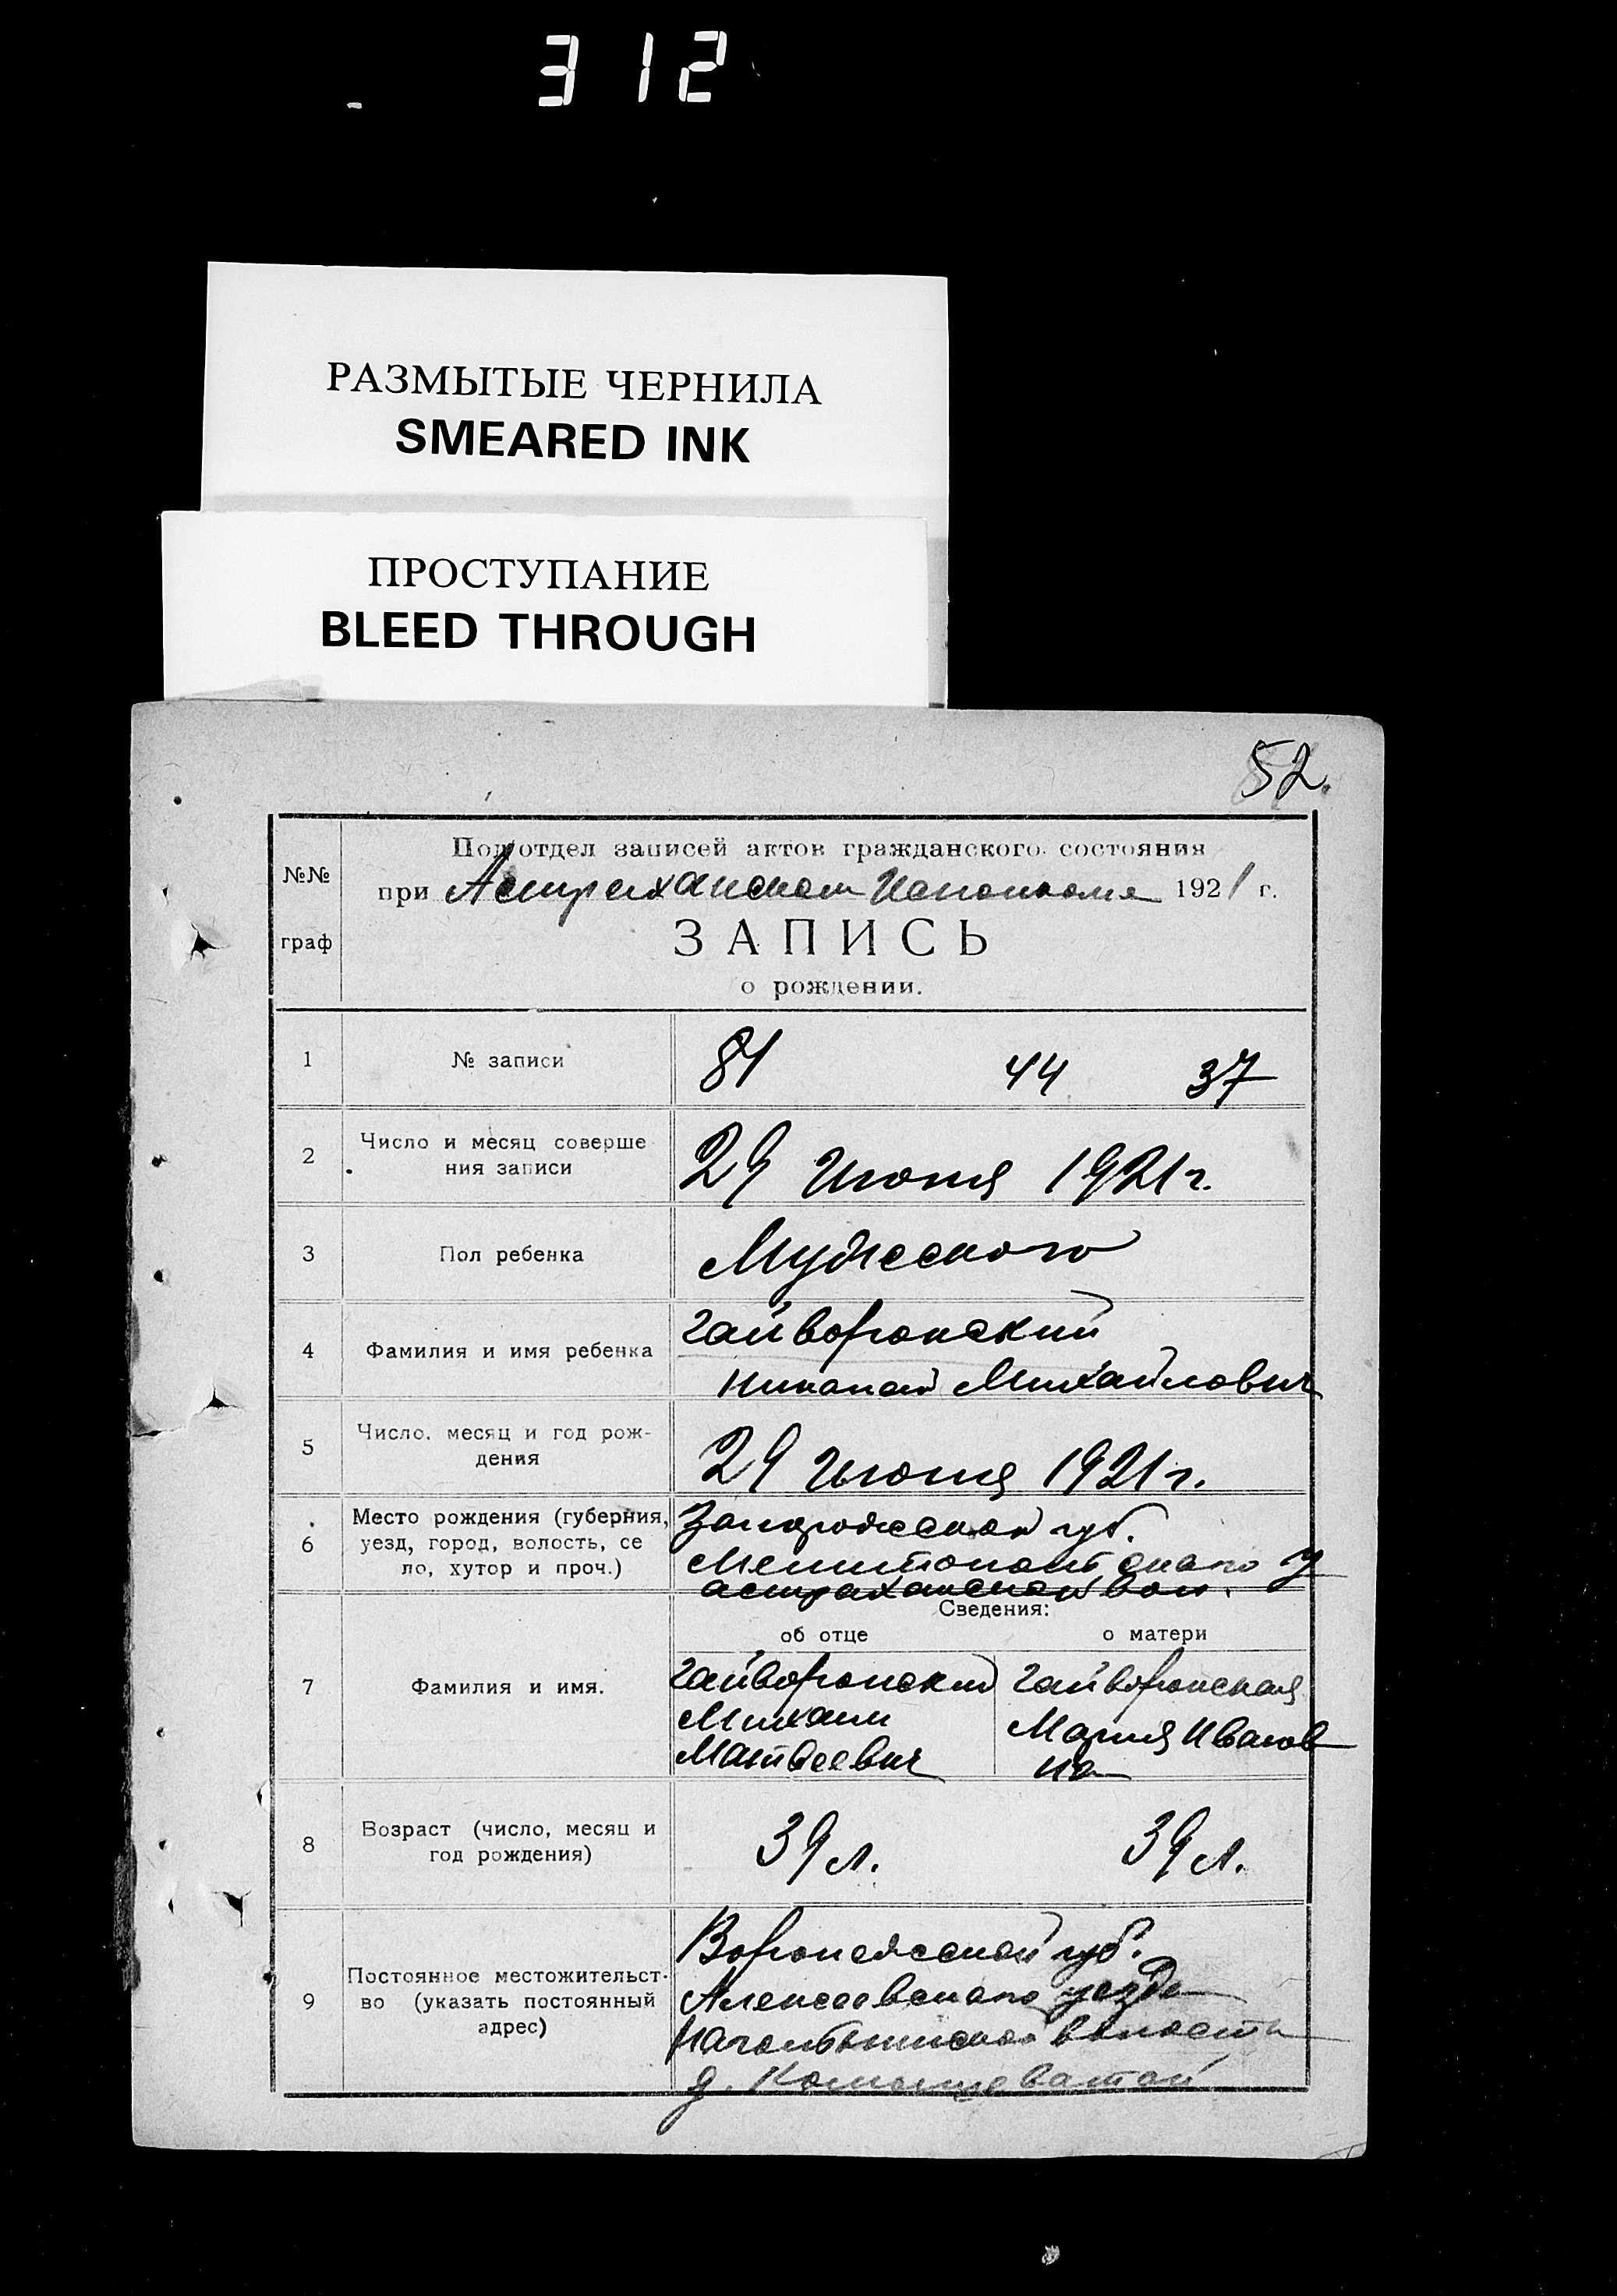 312
РАЗМЫТЫЕ ЧЕРНИЛА
SMEARED INK
ПРОСТУПАНИЕ
BLEED THROUGH
52.
№№
граф
Подотдел записей актов гражданского состояния
при Астраханском Исполкоме 1921 г.
ЗАПИСЬ
о рождении.
1 № записи 81 44 37
2 Число и месяц соверше
ния записи
29 Июня 1921 г.
3 Пол ребенка Мужеского
4 Фамилия и имя ребенка
Гайворонский
Николай Михайлович
5 Число. месяц и год рож-
дения
29 Июня 1921 г.
6 Место рождения (губерния,
уезд, город, волость, се
ло, хутор и проч.)
Запорожской губ.
Мелитопольскаго у
астраханской вол.
Сведения:
об отце о матери
7 Фамилия и имя.
Гайворонский
Михаил
Матвеевич
Гайворонская
Мария Иванов
на
8 Возраст (число, месяц и
год рождения)
39 л. 39 л.
9 Постоянное местожительст-
во (указать постоянный
адрес)
Воронежской губ.
Алексеевскаго уезда
волости
д.